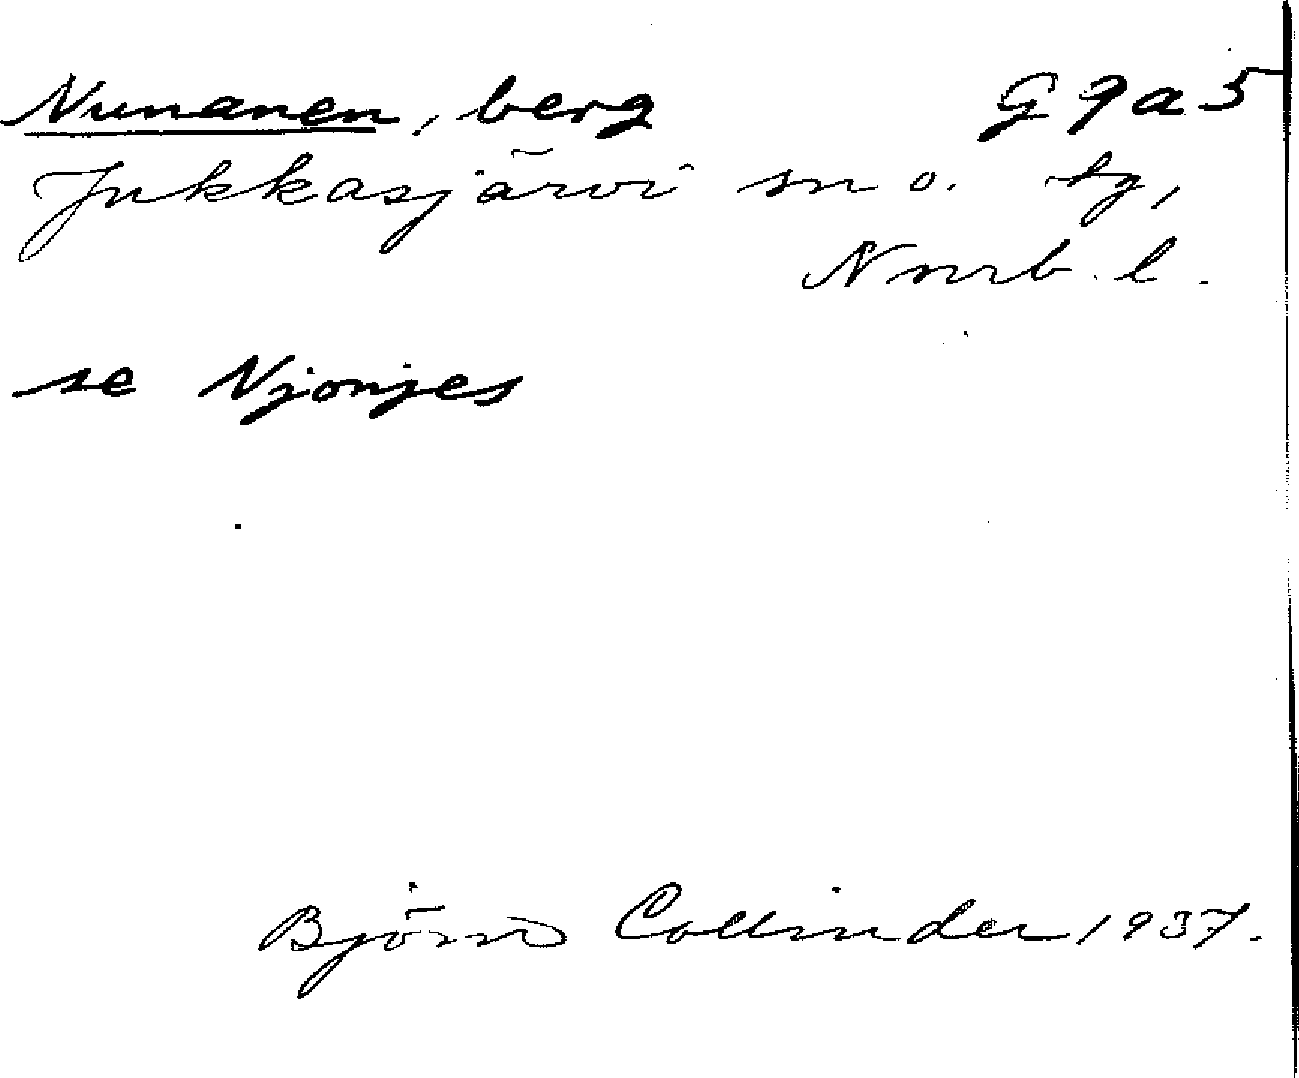 Nunanen, berg G 9 a 5
Jukkasjärvi sn o. tg,
Norrb. l.
se Njonjes
Björn Collinder 1937.